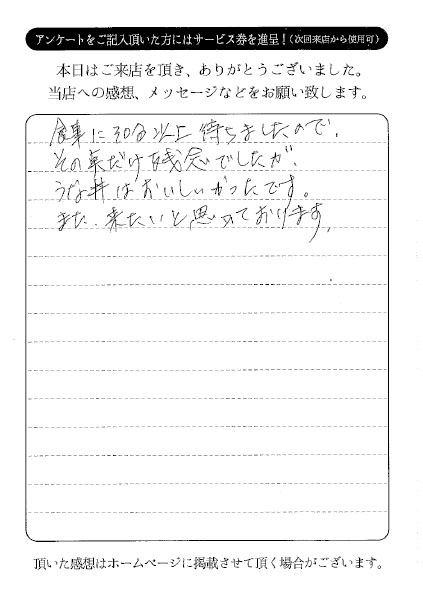 アンケートをご記入頂いた方にはサービス券を進呈!(次回来店から使用可)
本日はご来店を頂き、ありがとうございました。
当店への感想、メッセージなどをお願い致します。
食事に30分以上待ちましたので、
その点だけ残念でしたが、
うな丼はおいしかったです。
また、来たいと思っております。
頂いた感想はホームページに掲載させて頂く場合がございます。